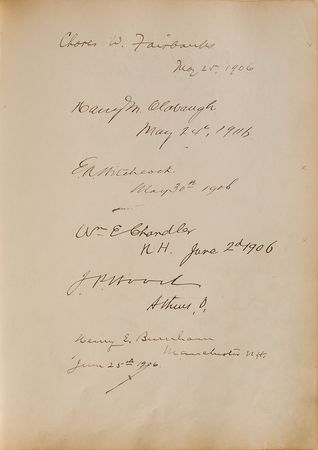 Chares W. Fairbanks
May 25, 1906
Harry M. Clabaugh
May 24th, 1906
E A Hitchcock
May 30th 1906
Wm E Chandler
N H. June 2d 1906
J. P. Wood
Athens, O,
Henry E. Burnham
Manchester N.H.
June 25th 1906.